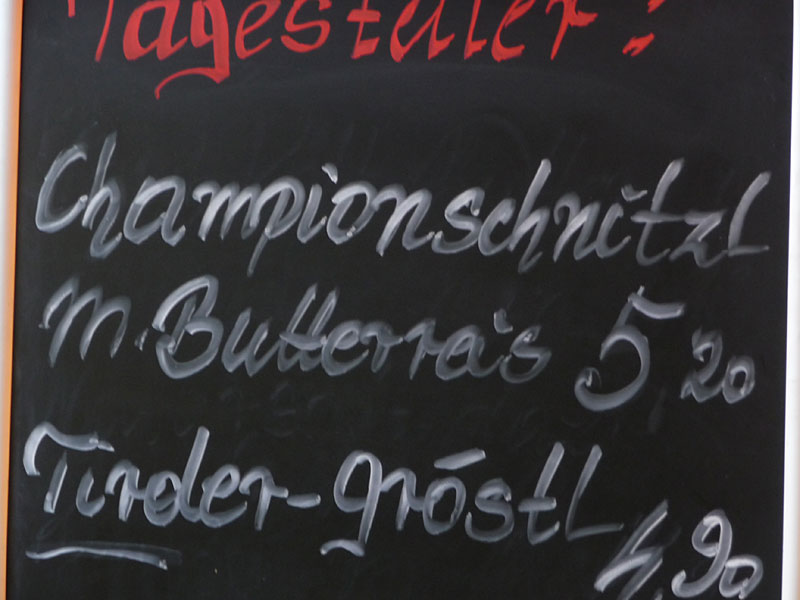 Tagesteller:
Championschnitzl
m. Butterrais 5,20
Tiroler-gröstl 4,90